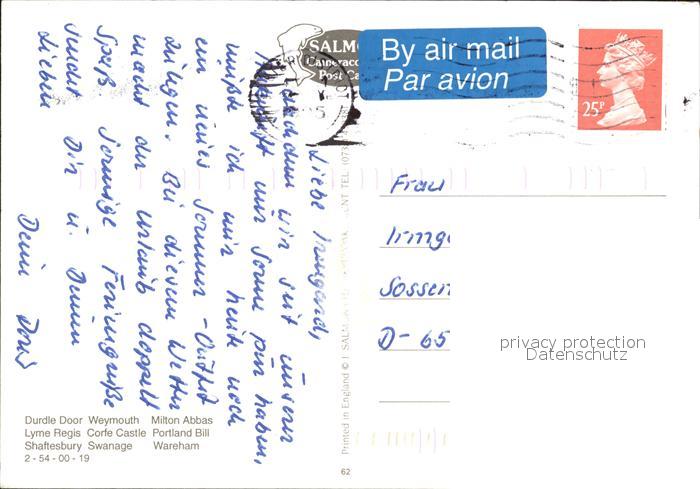 Liebe Irmgard,
nachdem wir seit unserer
Ankunft nur Sonne pur haben,
mußte ich mir heute noch
ein neues Sommer-Outfit
zulegen. Bei diesem Wetter
macht der Urlaub doppelt
Spaß. Sonnige Feriengrüße
sendet Dir u. Deinen
Lieben
Deine
SALM
Cameraco
Post Ca
By air mail
Par avion
25P
Frau
Irmg
Sossen
D-65
privacy protection
Datenschutz
Printed in England © J. SALMON
NT TEL. (073
Durdle Door Weymouth Milton Abbas
Lyme Regis Corfe Castle Portland Bill
Shaftesbury Swanage Wareham
2 - 54 - 00 - 19
62